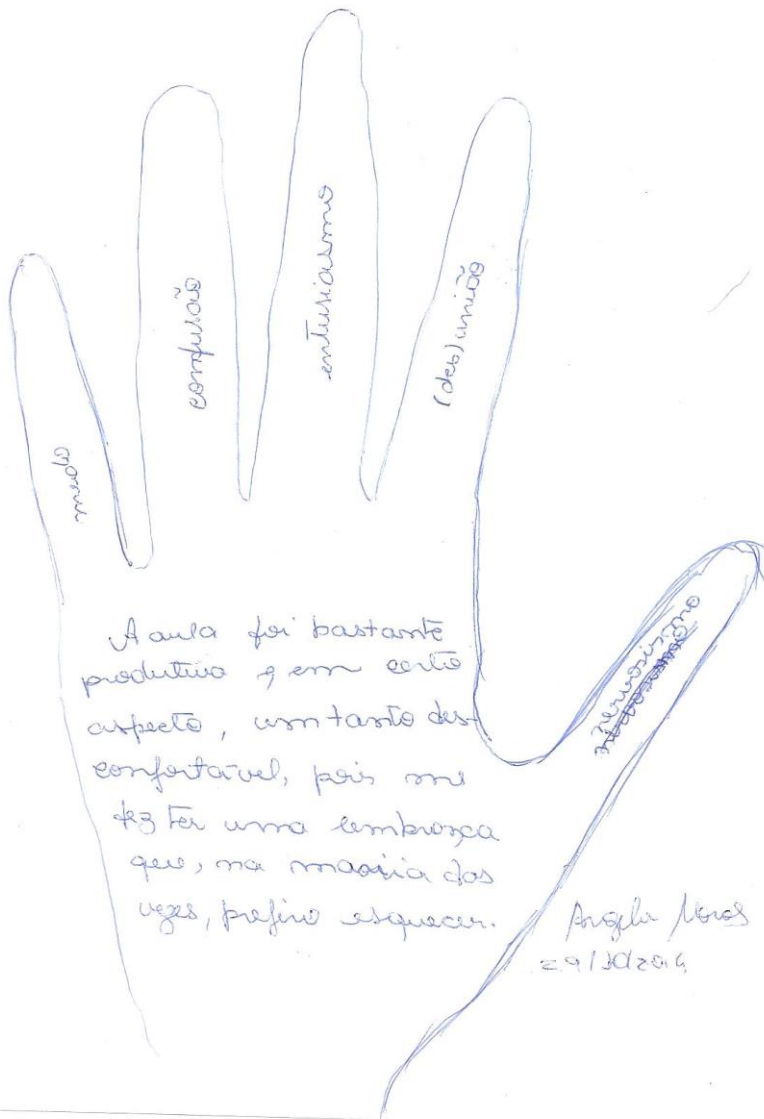 medo
confusão
entusiasmo
(des)união
nervosismo
A aula foi bastante
produtiva e, em certo
aspecto, um tanto des-
confortável, pois me
fez ter uma lembrança
que, na maioria das
vezes, prefiro esquecer.
Angela